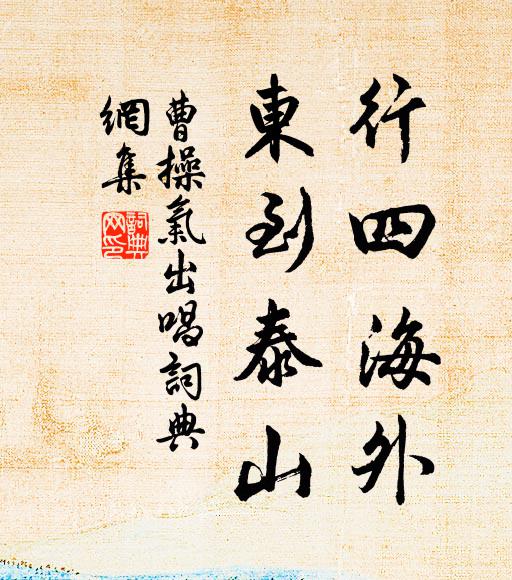 行四海外
東到泰山
曹操氣出唱詞典
網集
詞典
网印